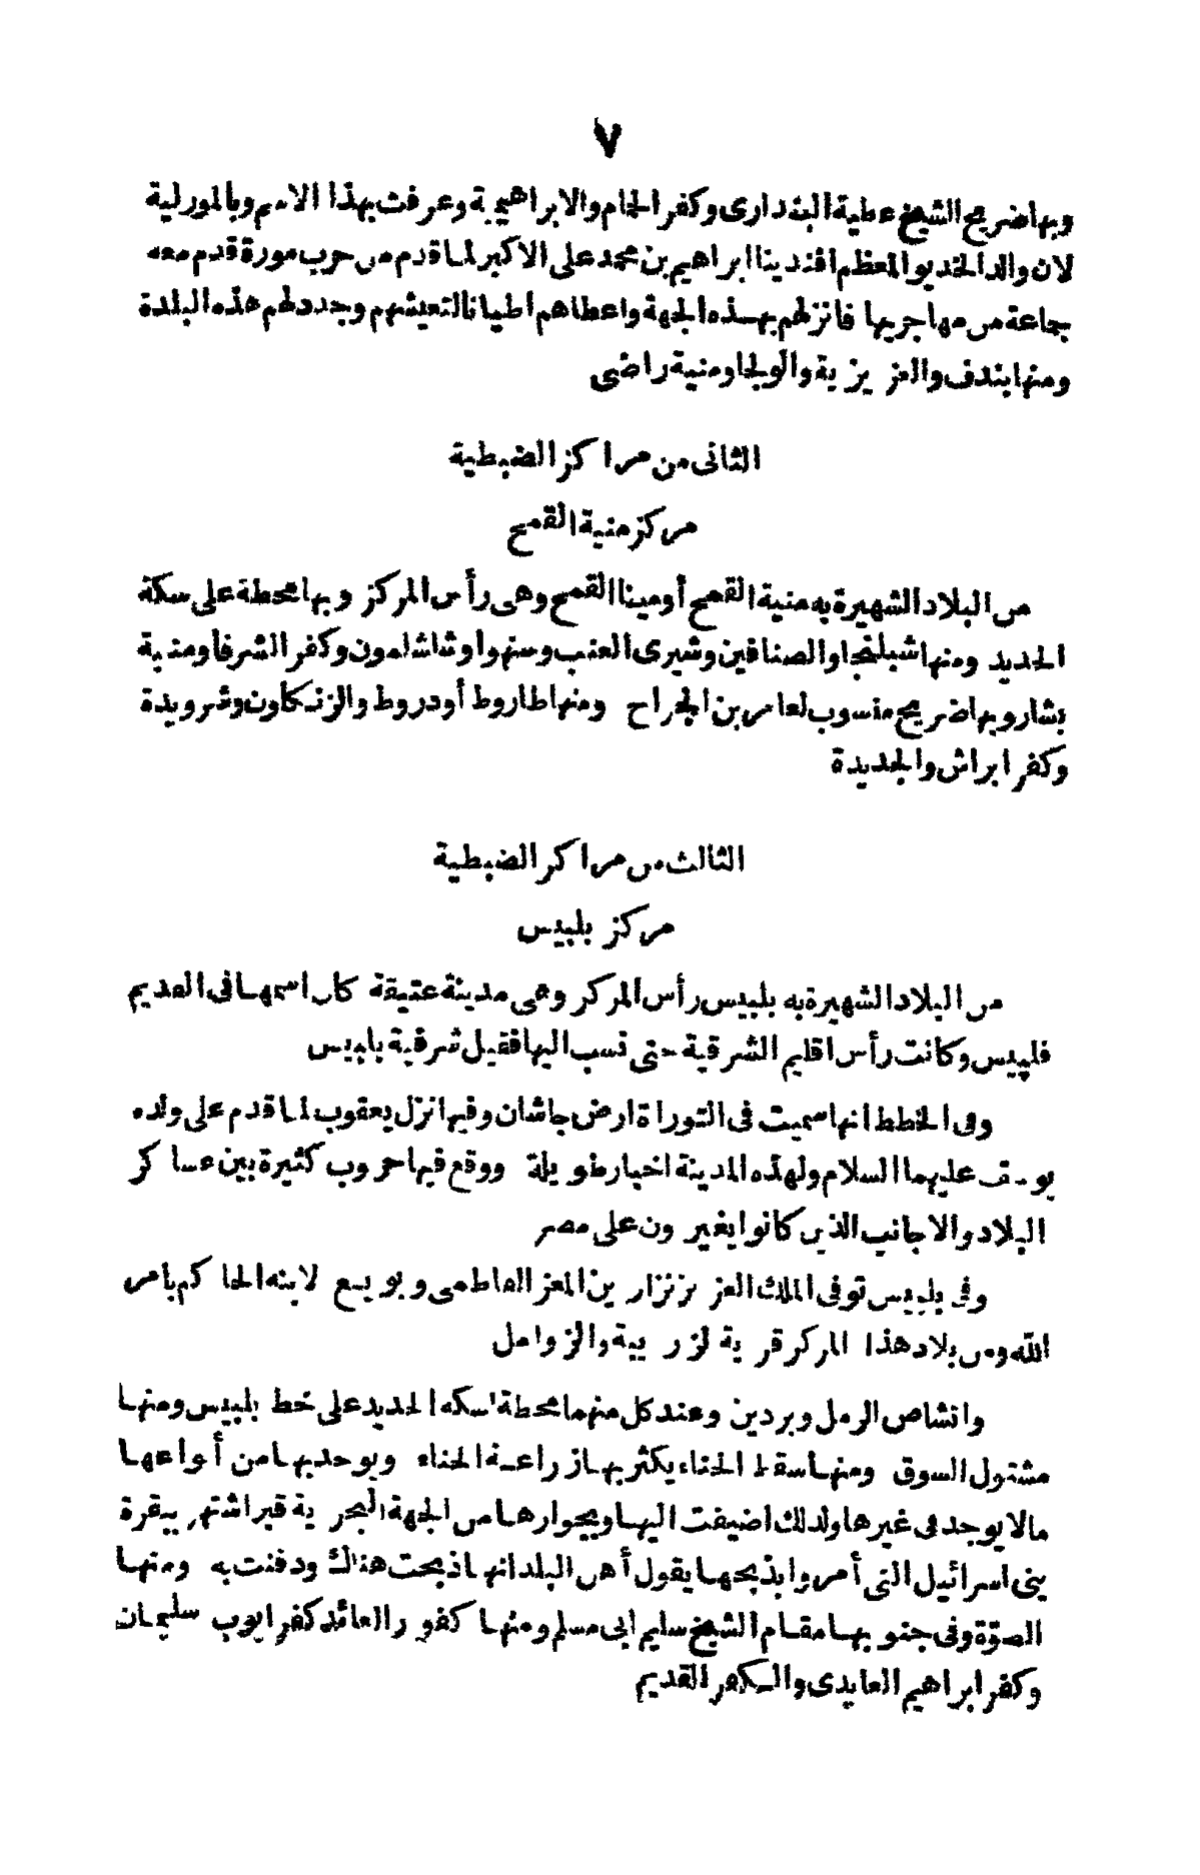 ٧
وبها ضريح الشيخ عطية البندارى وكفر الحمام والابراهيمية وعرفت بهذا الاسم وبالمورلية
لان والد الخديو المعظم افندينا ابراهيم بن محمد على الاكبر لما قدم من حرب مورة قدم معه
جماعة من مهاجريها فانزلهم بهذه الجهة واعطاهم اطيانا لتعيشهم وجدد لهم هذه البلدة
ومنها بندف والعزيزية والولجا ومنية راضى
الثانى من مراكز الضبطية
مركز منية القمح
من البلاد الشهيرة به منية القمح أو مينا القمح وهى رأس المركز وبها محطة على سكة
الحديد ومنها شبلنجا والصنافين وشبرى العنب وسنهوا وشلشلمون وكفر الشرفا ومنية
بشار وبها ضريح منسوب لعامر بن الجراح ومنها طاروط أو دروط والزنكلون وشرويدة
وكفر ابراش والجديدة
الثالث من مراكز الضبطية
مركز بلبيس
من البلاد الشهيرة به بلبيس رأس المركز وهى مدينة عتيقة كان اسمها فى القديم
فلبيس وكانت رأس اقليم الشرقية حتى نسب اليها فقيل شرقية بلبيس
وفى الخطط انها سميت فى التوراة ارض جاشان وفيها نزل يعقوب لما قدم على ولده
يوسف عليهما السلام ولهذه المدينة اخبار طويلة ووقع فيها حروب كثيرة بين عساكر
البلاد والاجانب الذين كانوا يغيرون على مصر
وفى بلبيس توفى الملك العزيز نزار بن المعز الفاطمى وبويع لابنه الحاكم بامر
الله ومن بلاد هذا المركز قرية لزريبة والزوامل
وانشاص الرمل وبردين وعند كل منهما محطة لسكة الحديد على خط بلبيس ومنها
مشتول السوق ومنها سقط الحناء يكثر بها زراعة الحناء ويوجد بها من أنواعها
مالا يوجد فى غيرها ولذلك اضيفت اليها وبجوارها من الجهة البحرية قبر اشتهر ببقرة
بنى اسرائيل التى أمروا بذبحها يقول أهل البلد انها ذبحت هناك ودفنت به ومنها
الصوّة وفى جنوبها مقام الشيخ سليم ابى مسلم ومنها كفور العائد كفر ايوب سليمان
وكفر ابراهيم العايدى والكفر القديم